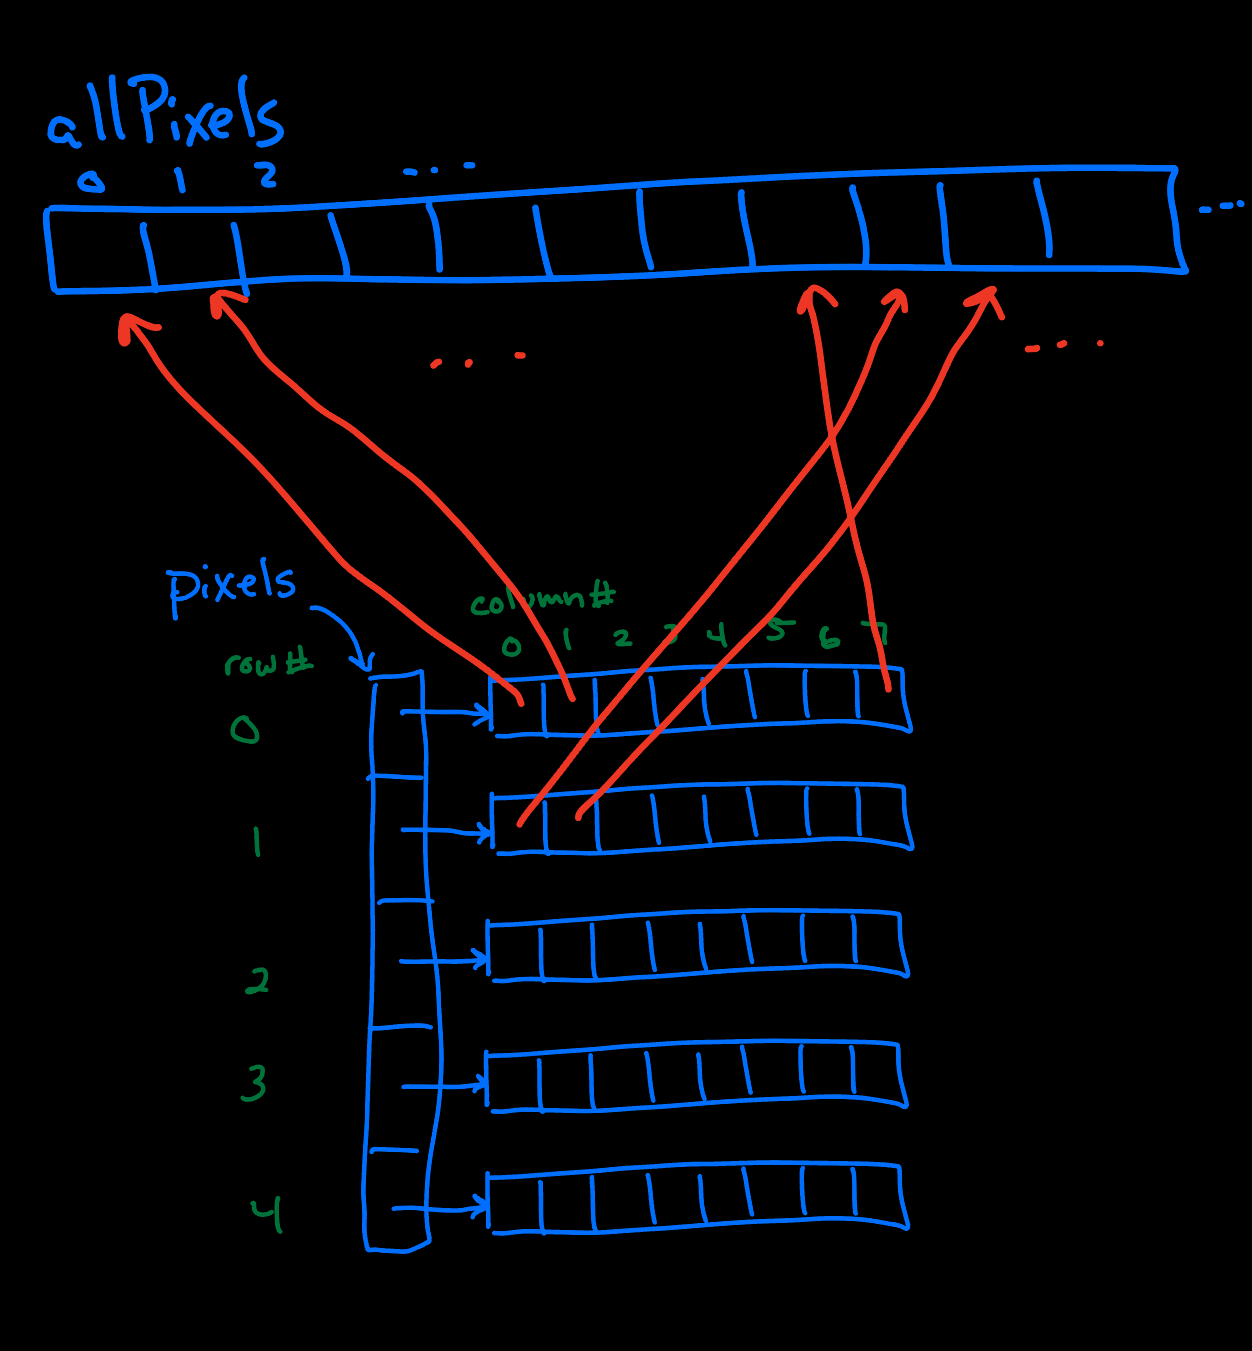 allPixels
0 1 2 ...
...
... ...
pixels
column #
row # 0 1 2 3 4 5 6 7
0
1
2
3
4